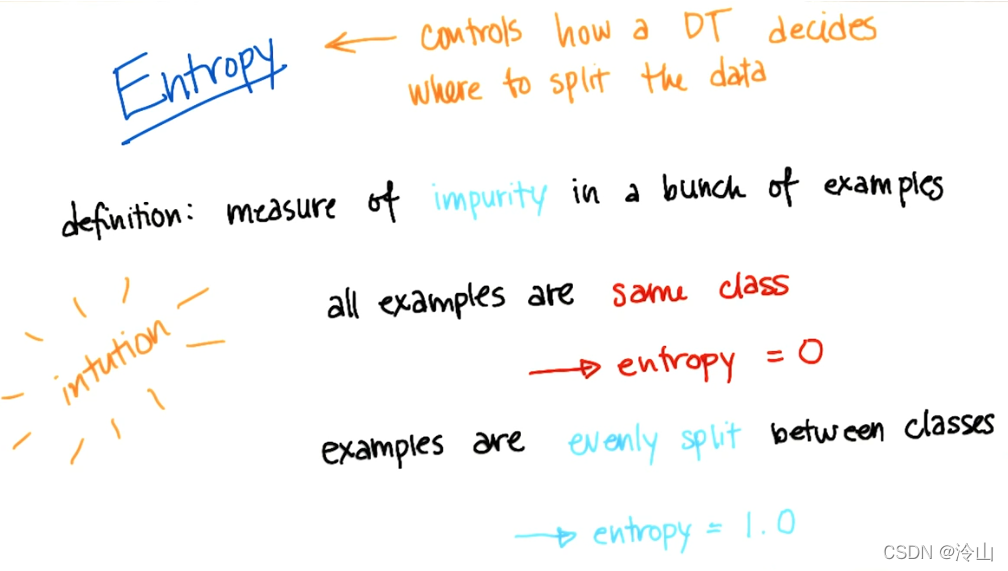 Entropy
controls how a DT decides
where to split the data
definition: measure of impurity in a bunch of examples
intution
all examples are same class
entropy = 0
examples are evenly split between classes
entropy = 1.0
CSDN @泠山